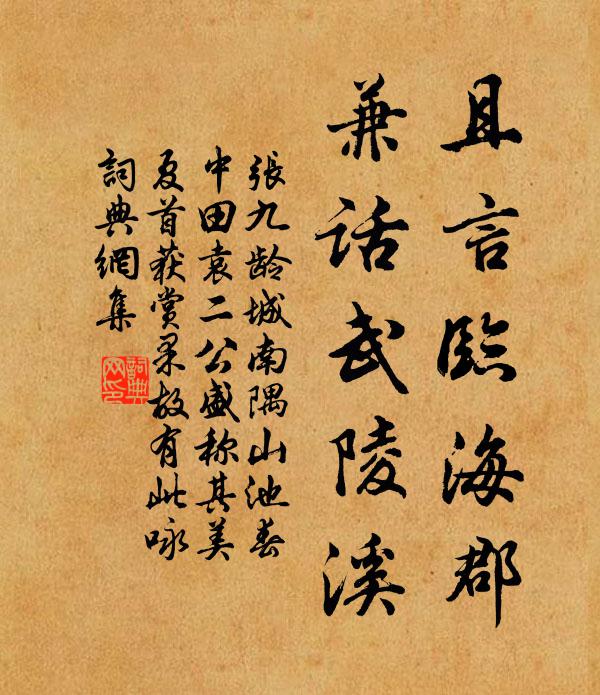 且言臨海郡
兼話武陵溪
張九龄城南隅山池春
中田袁二公盛称其美
夏首获賞果故有此咏
詞典網集
詞典
网印